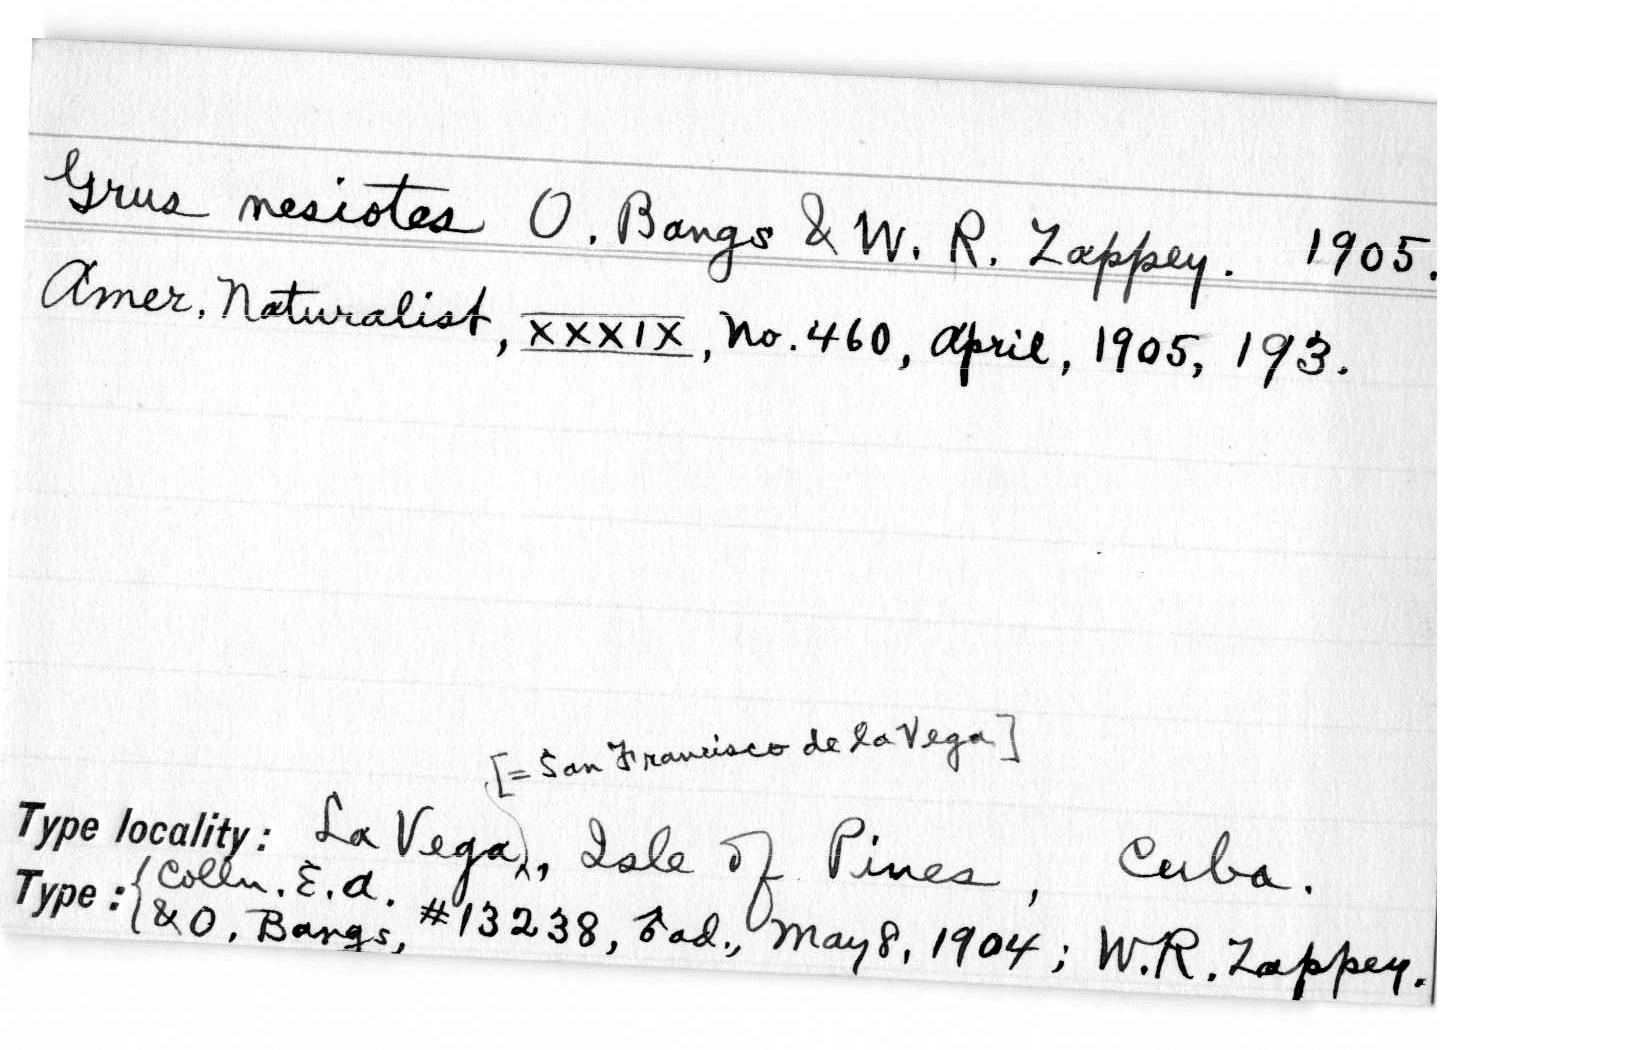 Grus nesiotes O. Bangs & W. R. Zappey. 1905.
Amer. Naturalist, XXXIX, No. 460, April, 1905, 193.
[= San Francisco de la Vega]
Type locality: La Vega, Isle of Pines, Cuba.
Type: { Colln. E. A. & O. Bangs, #13238, ♂ ad., May 8, 1904; W. R. Zappey.